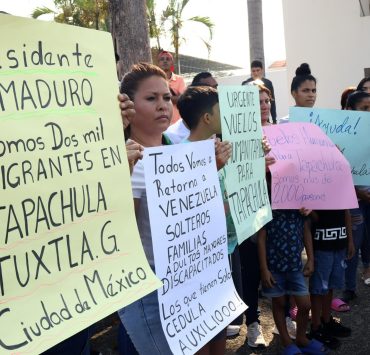 esidente
MADURO
omos Dos mil
IGRANTES EN
TAPACHULA
TUXTLA.G.
Ciudad de México
Todos Vamos a
Retorno a
VENEZUELA
SOLTEROS
FAMILIAS
ADULTOS MAYORES
DISCAPACITADOS
Los que tienen Solo
CEDULA
AUXILIOOO!
URGENTE
VUELOS
HUMANITARIOS
PARA
TAPACHULA
Vuelos
para
TAPACHULA
Somos mas de
2.000
¡Ayuda!